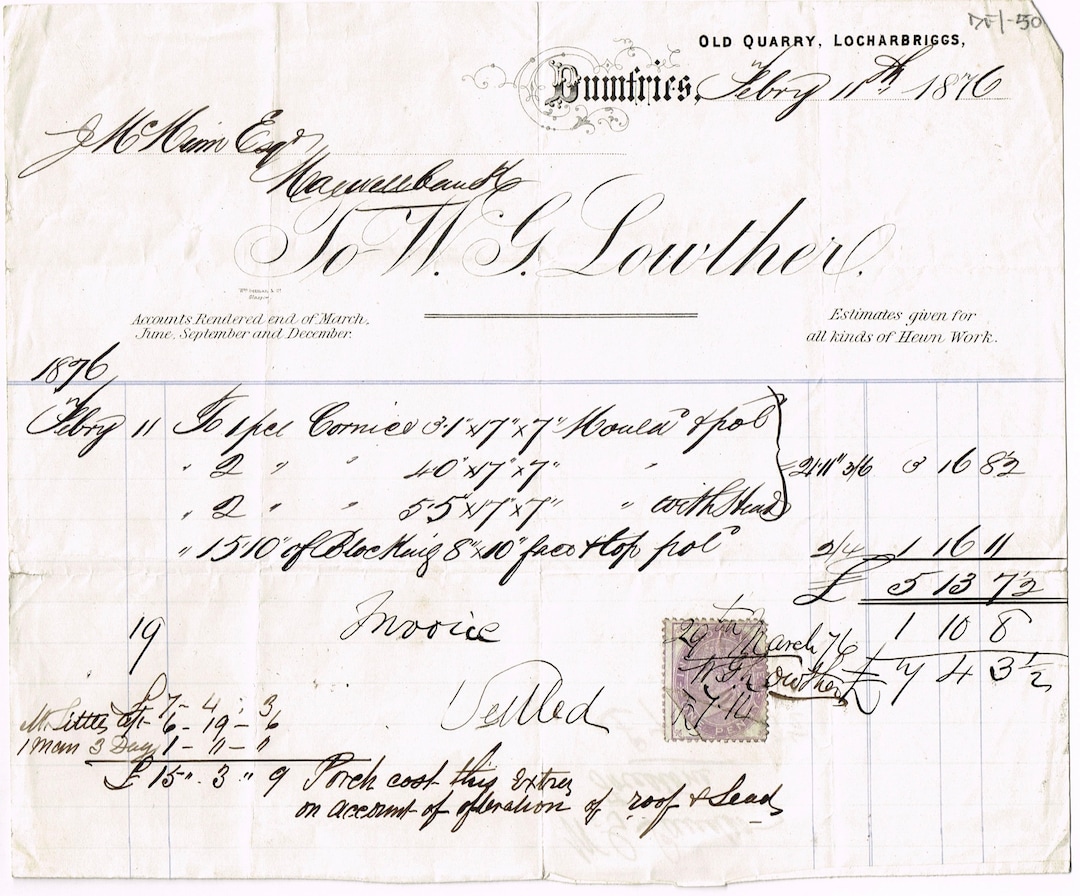 OLD QUARRY, LOCHARBRIGGS,
Dumfries, Febry 11th 1876
J McKinn Esqr
Maxwellbank
To W. G. Lowther.
Accounts Rendered end of March,
June, September and December.
Estimates given for
all kinds of Hewn Work.
1876
Febry 11 To 1 pce Cornice 3.1"x17"x7" Mould & pold
" 2 " " 4.0"x17"x7" " 21.11" 3/6 3 16 8½
" 2 " " 5.5"x17"x7" " with
" 15.10" of Blocking 8"x10" face & top pold 2/4 1 16 11
£ 5 13 7½
19 Invoice 1 10 8
£ 7 4 3½
29th March 76
W G Lowther
£7.4.
Settled
PEN
£7 - 4 : 3
Mr Littles 6 - 19 - 6
1 Man 3 Days 1 - 0 - 0
£15 " 3 " 9 Porch cost this Extra
on account of alteration of roof & Lead